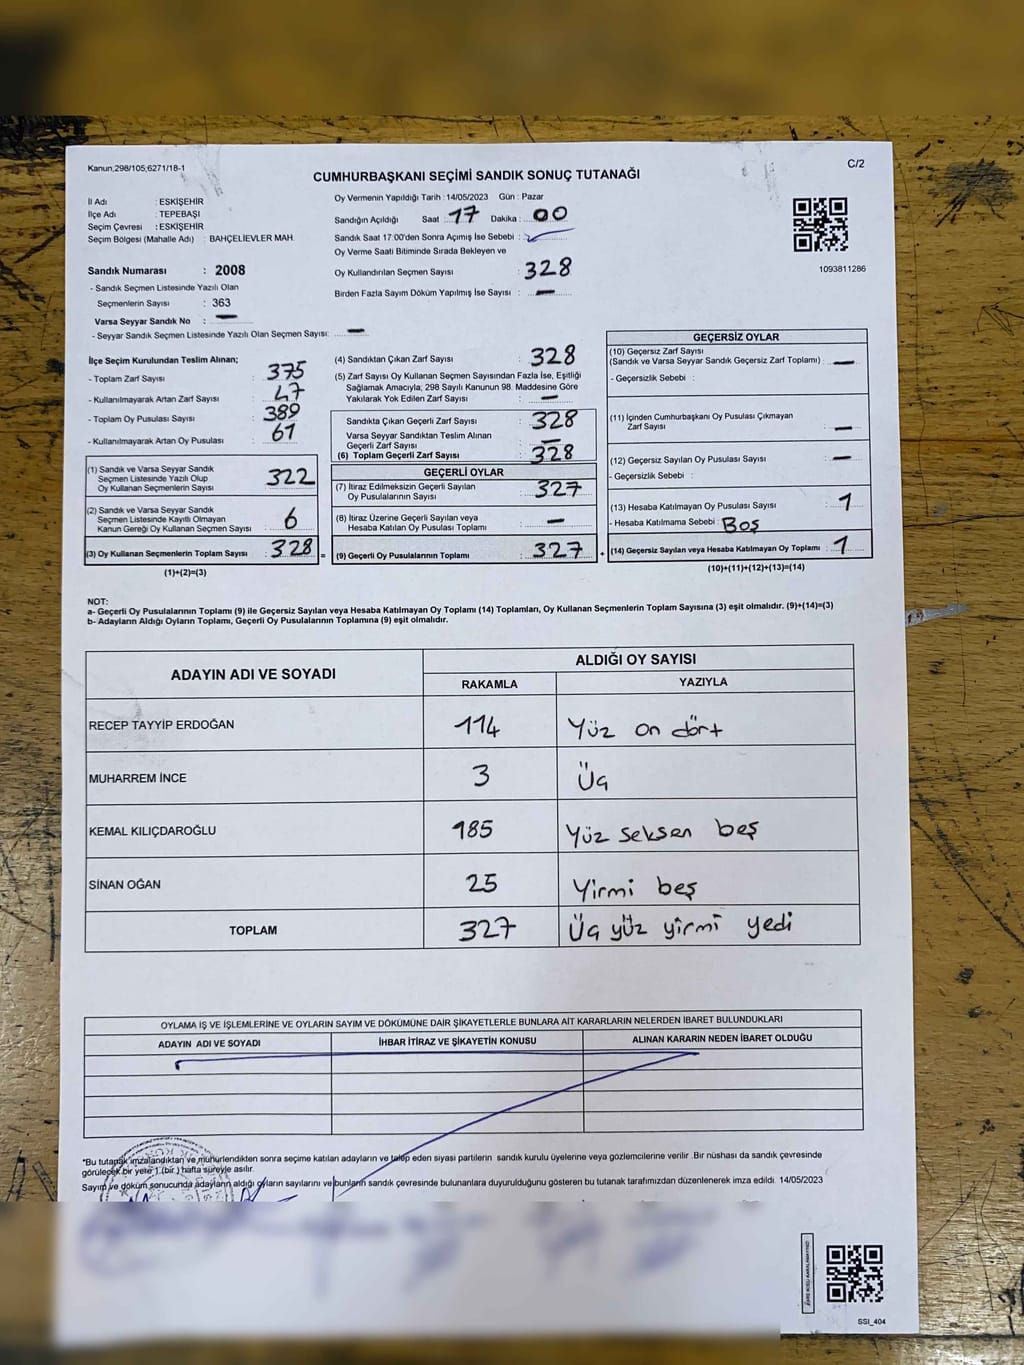 Kanun;298/105;6271/18-1
C/2
CUMHURBAŞKANI SEÇİMİ SANDIK SONUÇ TUTANAĞI
İl Adı : ESKİŞEHİR
İlçe Adı : TEPEBAŞI
Seçim Çevresi : ESKİŞEHİR
Seçim Bölgesi (Mahalle Adı) : BAHÇELİEVLER MAH.
Sandık Numarası : 2008
- Sandık Seçmen Listesinde Yazılı Olan
Seçmenlerin Sayısı : 363
Varsa Seyyar Sandık No : —
- Seyyar Sandık Seçmen Listesinde Yazılı Olan Seçmen Sayısı: —
Oy Vermenin Yapıldığı Tarih : 14/05/2023 Gün : Pazar
Sandığın Açıldığı Saat 17 Dakika : 00
Sandık Saat 17:00'den Sonra Açımış İse Sebebi :
Oy Verme Saati Bitiminde Sırada Bekleyen ve
Oy Kullandırılan Seçmen Sayısı : 328
Birden Fazla Sayım Döküm Yapılmış İse Sayısı : —
1093811286
İlçe Seçim Kurulundan Teslim Alınan;
- Toplam Zarf Sayısı : 375
- Kullanılmayarak Artan Zarf Sayısı : 47
- Toplam Oy Pusulası Sayısı : 389
- Kullanılmayarak Artan Oy Pusulası : 61
(1) Sandık ve Varsa Seyyar Sandık
Seçmen Listesinde Yazılı Olup
Oy Kullanan Seçmenlerin Sayısı : 322
(2) Sandık ve Varsa Seyyar Sandık
Seçmen Listesinde Kayıtlı Olmayan
Kanun Gereği Oy Kullanan Seçmen Sayısı : 6
(3) Oy Kullanan Seçmenlerin Toplam Sayısı : 328 =
(1)+(2)=(3)
(4) Sandıktan Çıkan Zarf Sayısı : 328
(5) Zarf Sayısı Oy Kullanan Seçmen Sayısından Fazla İse, Eşitliği
Sağlamak Amacıyla; 298 Sayılı Kanunun 98. Maddesine Göre
Yakılarak Yok Edilen Zarf Sayısı : —
Sandıkta Çıkan Geçerli Zarf Sayısı : 328
Varsa Seyyar Sandıktan Teslim Alınan
Geçerli Zarf Sayısı : —
(6) Toplam Geçerli Zarf Sayısı : 328
GEÇERLİ OYLAR
(7) İtiraz Edilmeksizin Geçerli Sayılan
Oy Pusulalarının Sayısı : 327
(8) İtiraz Üzerine Geçerli Sayılan veya
Hesaba Katılan Oy Pusulası Toplamı : —
(9) Geçerli Oy Pusulalarının Toplamı : 327 +
GEÇERSİZ OYLAR
(10) Geçersiz Zarf Sayısı
(Sandık ve Varsa Seyyar Sandık Geçersiz Zarf Toplamı) : —
- Geçersizlik Sebebi :
(11) İçinden Cumhurbaşkanı Oy Pusulası Çıkmayan
Zarf Sayısı : —
(12) Geçersiz Sayılan Oy Pusulası Sayısı : —
- Geçersizlik Sebebi :
(13) Hesaba Katılmayan Oy Pusulası Sayısı : 1
- Hesaba Katılmama Sebebi : Boş
(14) Geçersiz Sayılan veya Hesaba Katılmayan Oy Toplamı : 1
(10)+(11)+(12)+(13)=(14)
NOT:
a- Geçerli Oy Pusulalarının Toplamı (9) ile Geçersiz Sayılan veya Hesaba Katılmayan Oy Toplamı (14) Toplamları, Oy Kullanan Seçmenlerin Toplam Sayısına (3) eşit olmalıdır. (9)+(14)=(3)
b- Adayların Aldığı Oyların Toplamı, Geçerli Oy Pusulalarının Toplamına (9) eşit olmalıdır.
ADAYIN ADI VE SOYADI
ALDIĞI OY SAYISI
RAKAMLA YAZIYLA
RECEP TAYYİP ERDOĞAN 114 Yüz on dört
MUHARREM İNCE 3 Üç
KEMAL KILIÇDAROĞLU 185 Yüz seksen beş
SİNAN OĞAN 25 Yirmi beş
TOPLAM 327 Üç yüz yirmi yedi
OYLAMA İŞ VE İŞLEMLERİNE VE OYLARIN SAYIM VE DÖKÜMÜNE DAİR ŞİKAYETLERLE BUNLARA AİT KARARLARIN NELERDEN İBARET BULUNDUKLARI
ADAYIN ADI VE SOYADI İHBAR İTİRAZ VE ŞİKAYETİN KONUSU ALINAN KARARIN NEDEN İBARET OLDUĞU
*Bu tutanak imzalandıktan ve mühürlendikten sonra seçime katılan adayların ve talep eden siyasi partilerin sandık kurulu üyelerine veya gözlemcilerine verilir .Bir nüshası da sandık çevresinde
görülecek bir yere 1 (bir ) hafta süreyle asılır.
Sayım ve döküm sonucunda adayların aldığı oyların sayılarını ve bunların sandık çevresinde bulunanlara duyurulduğunu gösteren bu tutanak tarafımızdan düzenlenerek imza edildi. 14/05/2023
SSI_404